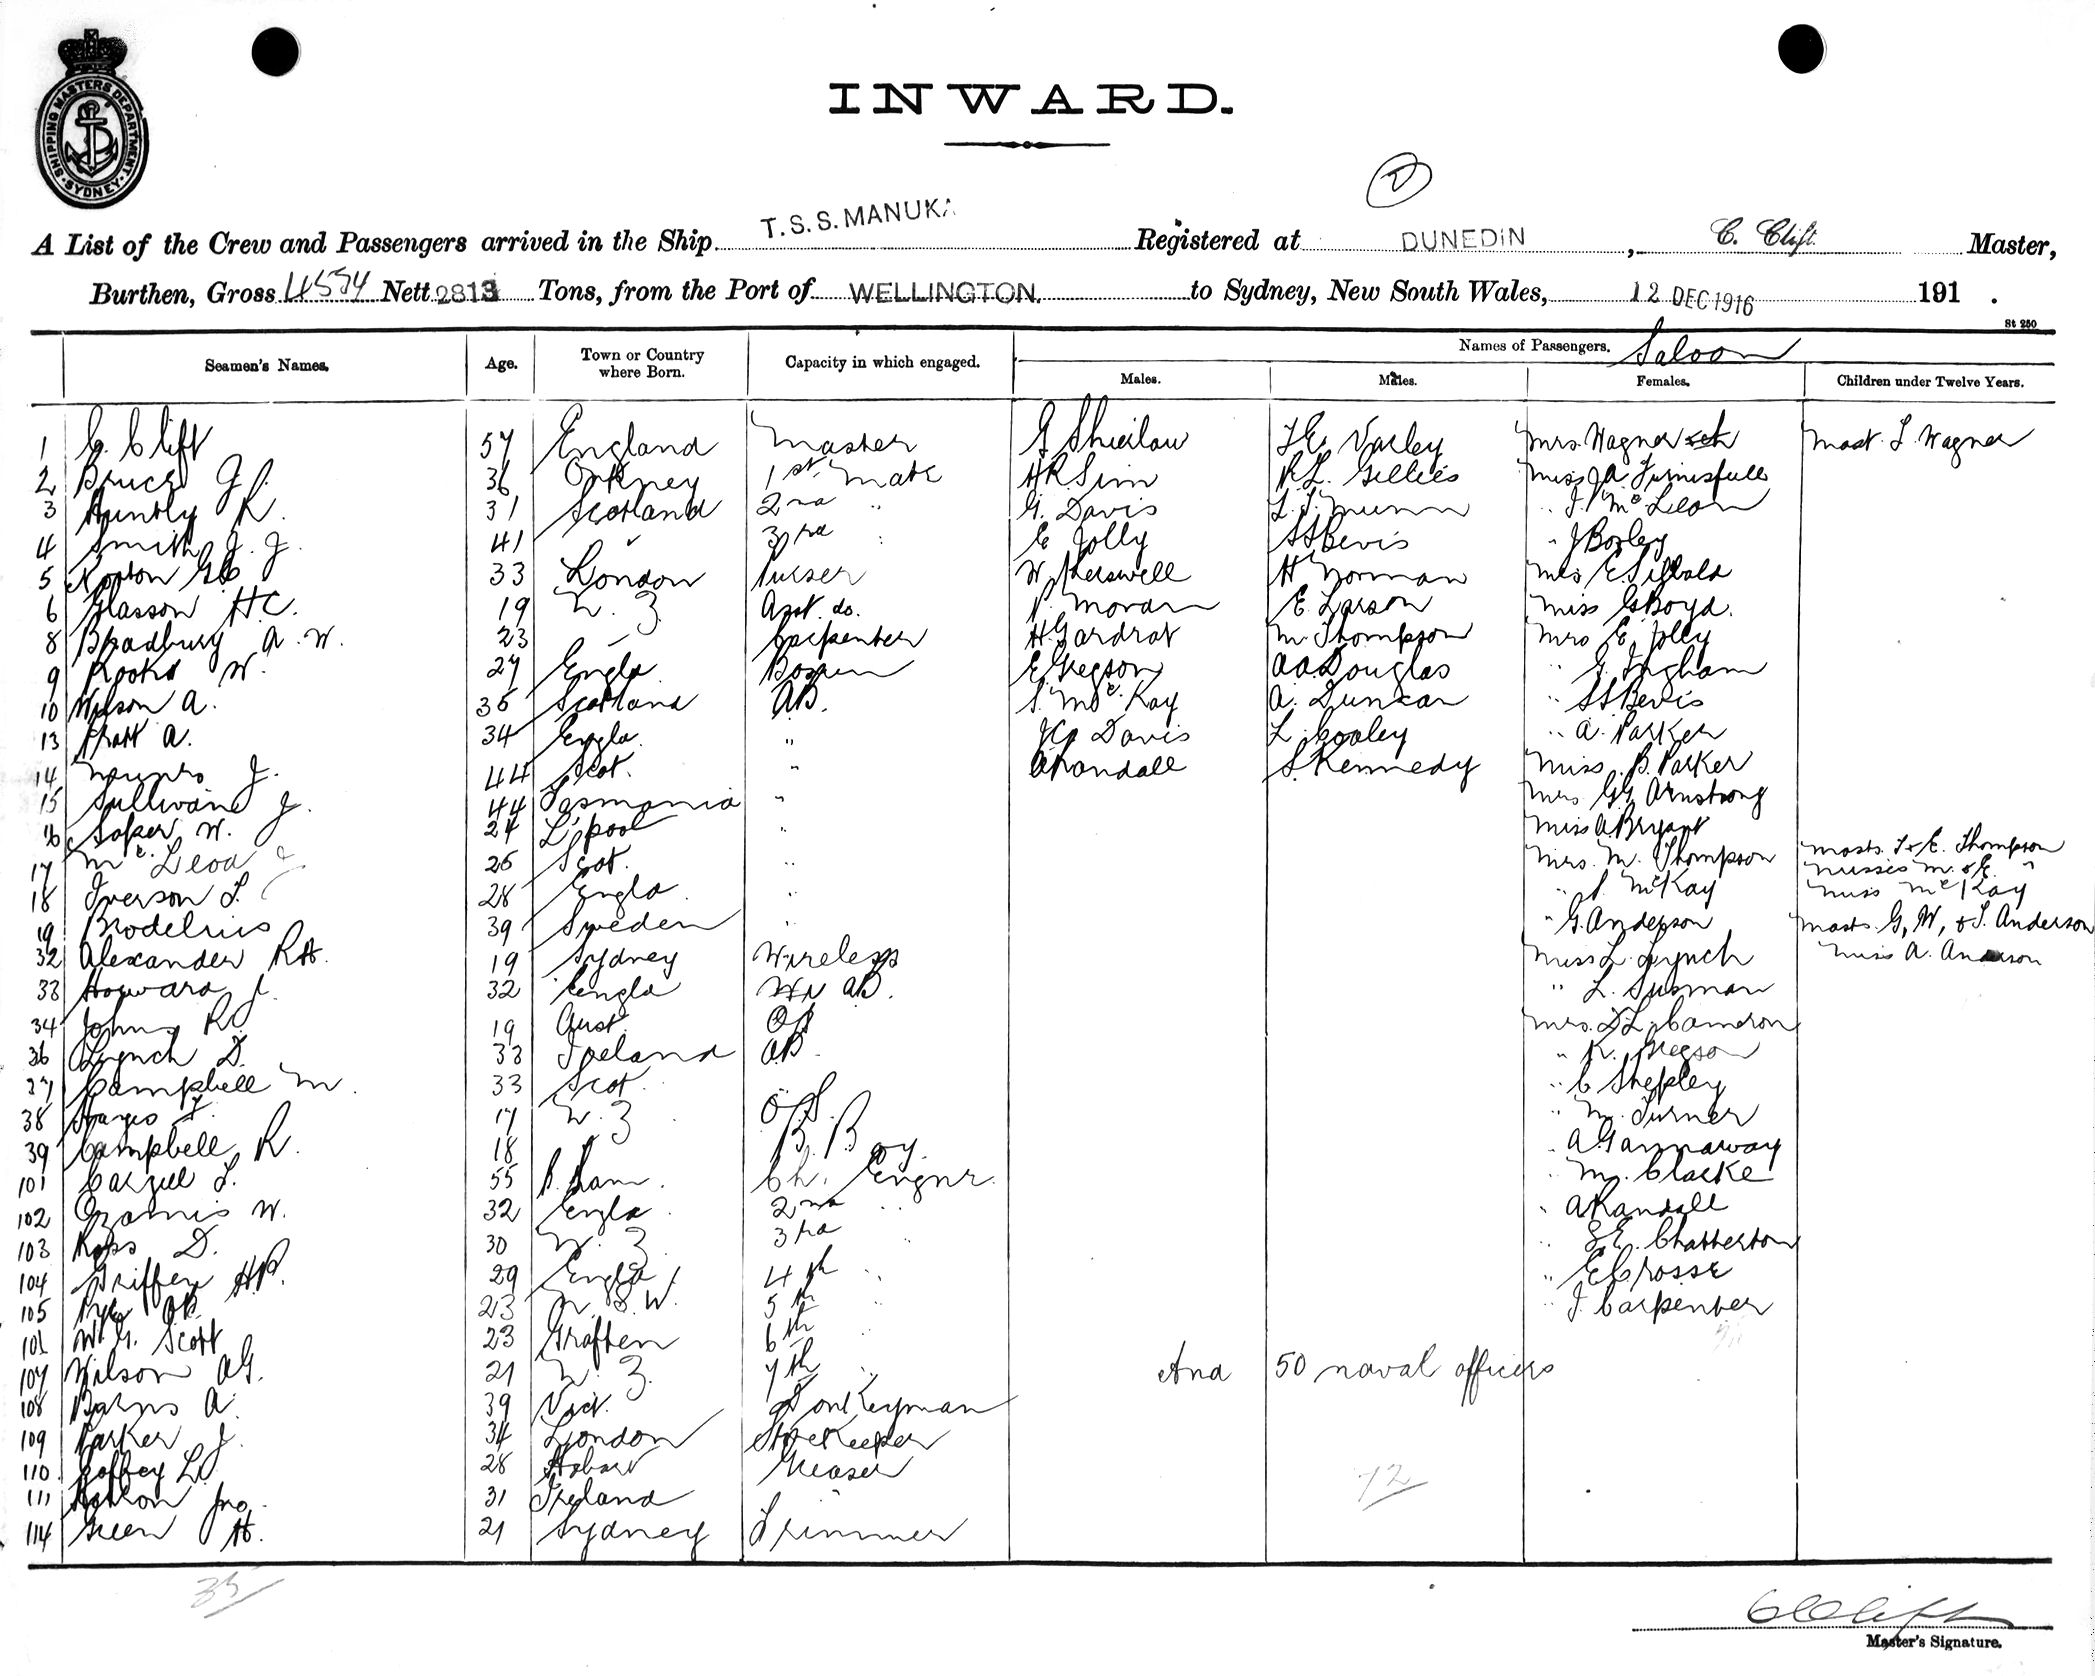 SHIPPING MASTERS DEPARTMENT. SYDNEY
INWARD.
2
A List of the Crew and Passengers arrived in the Ship T.S.S. MANUKA Registered at DUNEDIN, C. Clift Master,
Burthen, Gross 4534 Nett 2813 Tons, from the Port of WELLINGTON. to Sydney, New South Wales, 12 DEC 1916 191 .
St 250
Seamen's Names. Age. Town or Country where Born. Capacity in which engaged. Names of Passengers. Saloon
Males. Males. Females. Children under Twelve Years.
1 C. Clift 57 England Master G Sheilau Varley Mrs. Wagner Mast. L Wagner
2 Bruce J. 36 Orkney 1st Mate HR Sim R.L. Gillies Miss
3 Huntly R. 31 Scotland 2nd " G. Davis Munn " J. McLeod
4 Smith J. J. 41 " 3rd " E Jolly SS Bevis " J Boxley
5 33 London Purser W H Norman Mrs E. Sibbald
6 Glasson H.C. 19 N. Z. Asst. do. P. Moran E. Larson Miss G Boyd.
8 Bradbury A. W. 23 " Carpenter H. Gardrat M. Thompson Mrs E. Jolly
9 Rooks W. 27 Engld Bosun E Gregson A A Douglas " G. Ingham
10 Wilson A. 35 Scotland AB. S. McKay A. Duncan " SS Bevis
13 Pratt A. 34 Engld. " Davis L. Cooley " A. Parker
14 Munro J. 44 Scot. " A Randall S. Kennedy Miss B. Parker
15 Sullivan J. 44 Tasmania " Mrs G Armstrong
16 Soper W. 24 L'pool " Miss A. Bryant
17 McLeod J 25 Scot. " Mrs. M. Thompson Masts. J & E. Thompson
Misses M. & E. "
18 Iverson L. 28 Engld " " S. McKay Miss McKay
19 Brodelius 39 Sweden " " G. Anderson Masts. G, W, & S. Anderson
32 Alexander R.H. 19 Sydney Wireless Miss L. Lynch Miss A. Anderson
33 Howard J. 32 Engld AB. " L. Susman
34 Johns R. 19 Aust. OS Mrs. D L. Cameron
36 Lynch D. 33 Ireland AB. " K. Gregson
37 Campbell M. 33 Scot. " " C Shepley
38 Hayes J. 17 N. Z. O.S. " M. Turner
39 Campbell R. 18 " B. Boy. " A Gannaway
101 Cargill L. 55 B. Ham. Ch. Engnr. " M. Clarke
102 W. 32 Engld. 2nd " " A Randall
103 Ross D. 30 N. Z. 3rd " " S.E. Chatterton
104 Griffen H.P. 29 Engld. 4th " " E Crosse
105 Pye 23 N. S. W. 5th " " J. Carpenter
106 W. G. Scott 23 Graften 6th "
107 Wilson A G. 21 N. Z. 7th " And 50 naval officers
108 A. 39 Vict. Donkeyman
109 Parker J. 34 London Storekeeper
110 L. 28 Hobart Greaser
111 Jno. 31 Ireland
114 Green H. 21 Sydney Trimmer
72
35
C Clift
Master's Signature.